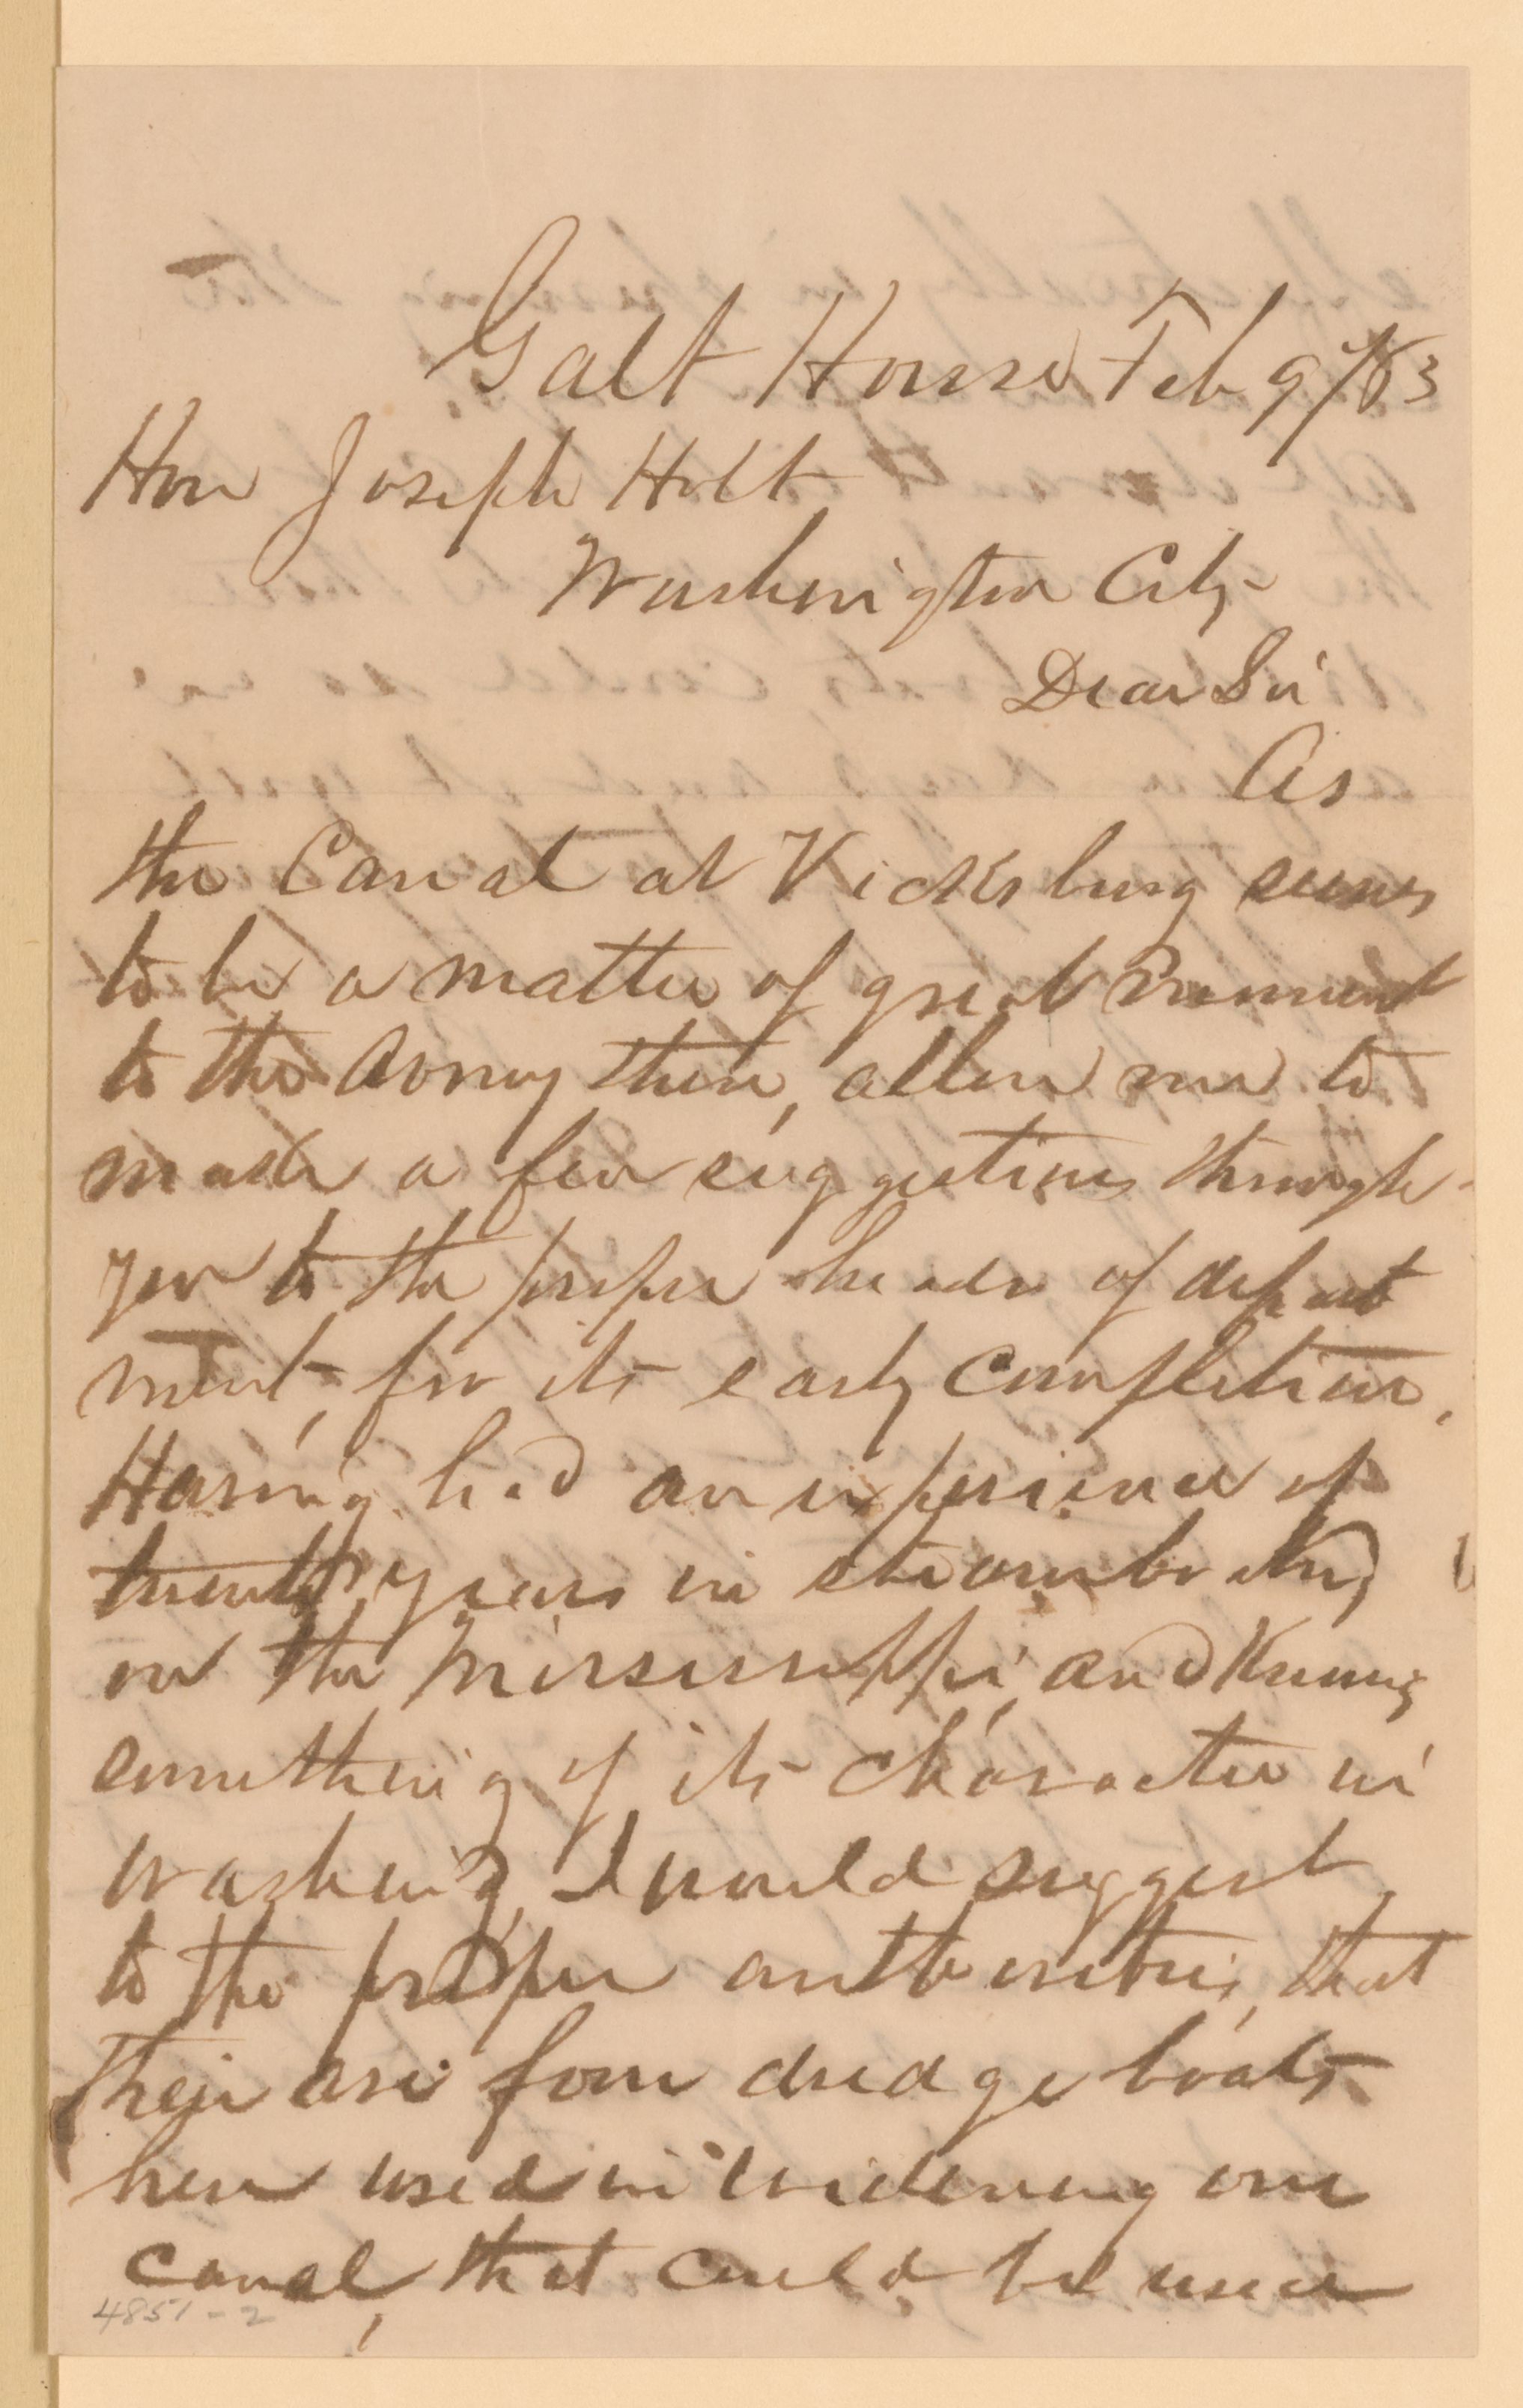 Galt House Feb 9/63
Hon Joseph Holt
Washington City
Dear Sir
As
the Canal at Vicksburg seems
to be a matter of great moment
to the Army there, allow me to
make a few suggestions through
you to the proper heads of depart
ment, for its early completion,
Having had an experience of
twenty years in steamboating
on the Mississippi, and knowing
something of its character in
washing, I would suggest
to the proper authorities, that
their are four dredge boats
here used in widening our
canal, that could be used
4851-2